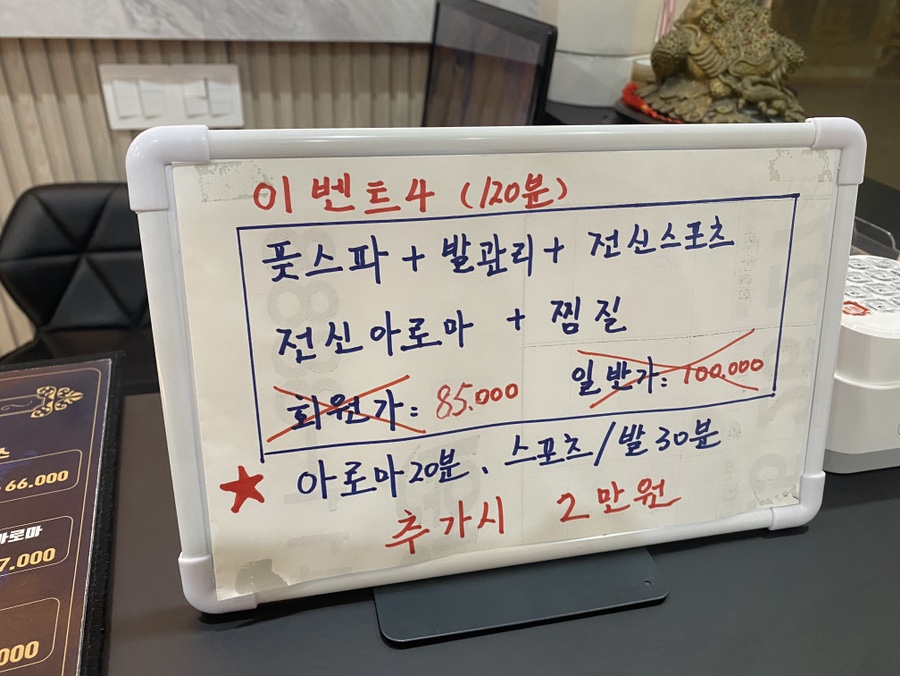 이벤트4 (120분)
풋스파 + 발관리 + 전신스포츠
전신아로마 + 찜질
회원가: 85.000 일반가: 100.000
★ 아로마20분、스포츠/발30분
추가시 2만원
스
66.000
아로마
7.000
000